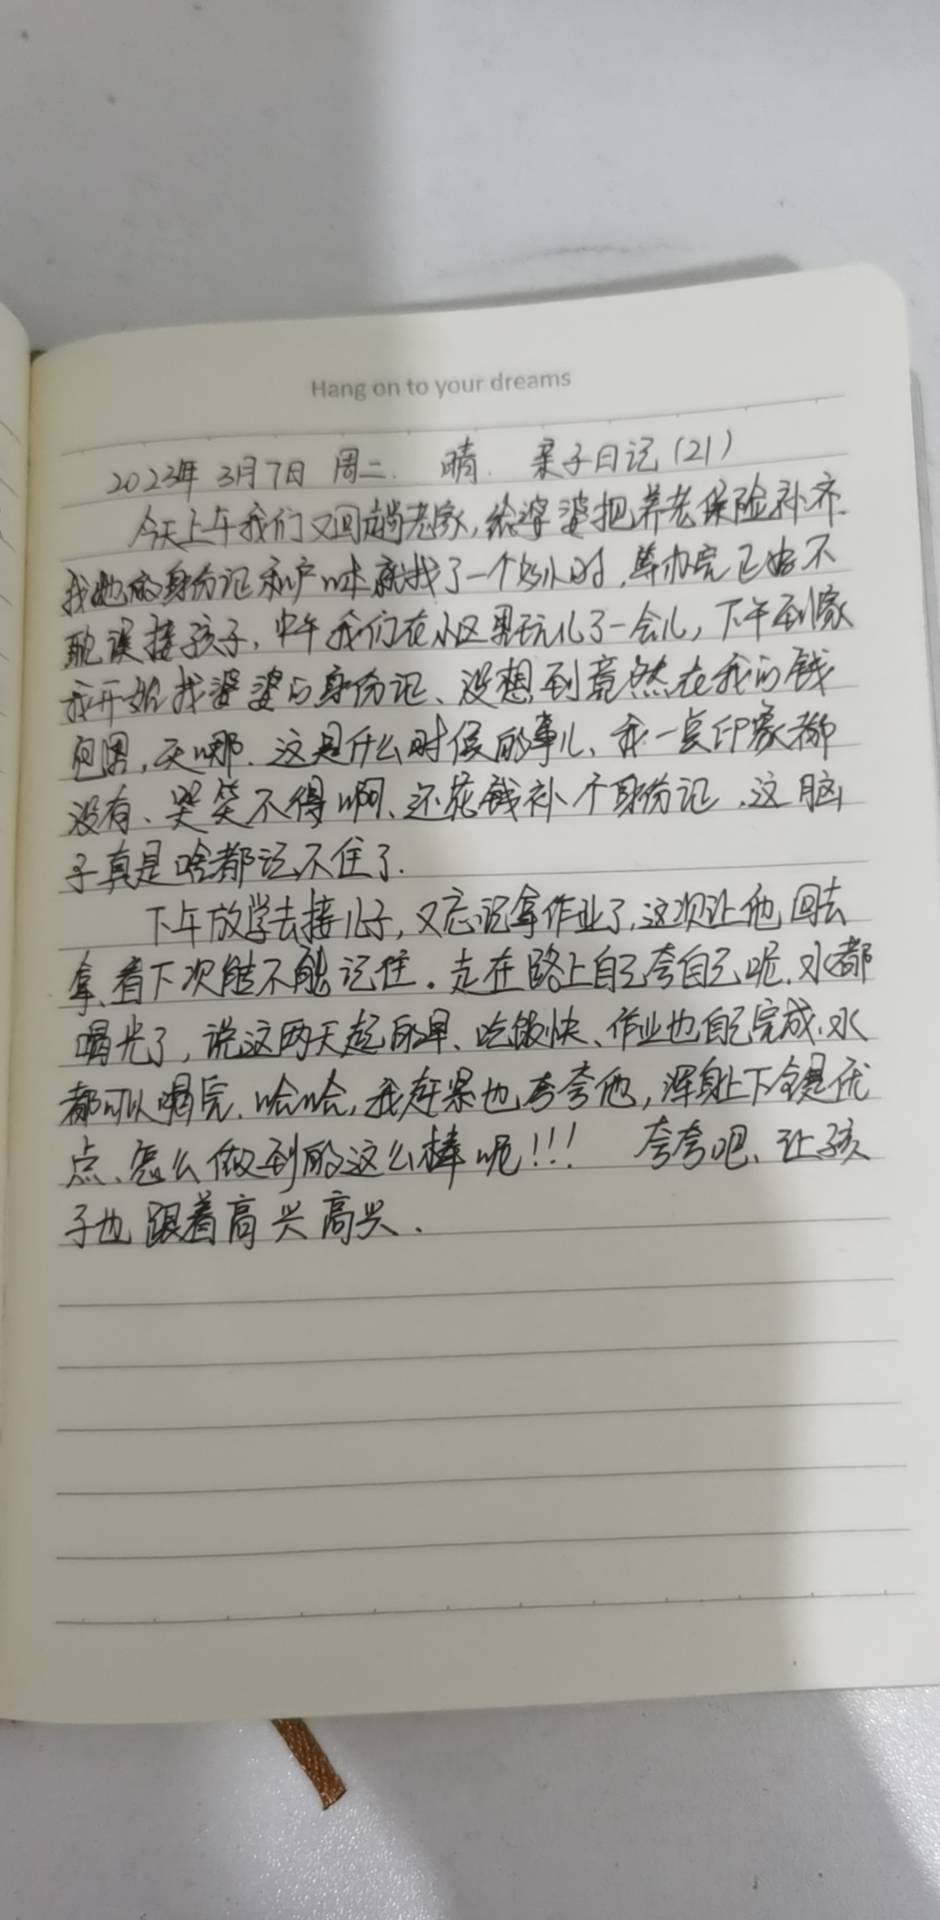 Hang on to your dreams
2023年 3月7日 周二. 晴. 亲子日记(21)
今天上午我们又回趟老家,给婆婆把养老保险补齐.
找她的身份证和户口本就找了一个多小时,等办完已好不
耽误接孩子,中午我们在小区里玩儿了一会儿,下午到家
我开始找婆婆的身份记、没想到竟然在我的钱
包里,天哪.这是什么时候的事儿、我一点印象都
没有、哭笑不得啊、还花钱补个身份记.这脑
子真是啥都记不住了.
下午放学去接儿子,又忘记拿作业了,这次让他回去
拿、看下次能不能记住。走在路上自己夸自己呢.水都
喝光了,说这两天起的早、吃饭快、作业也自己完成.水
都可以喝完.哈哈,我赶紧也夸夸他,浑身上下全是优
点、怎么做到的这么棒呢!!! 夸夸吧、让孩
子也跟着高兴高兴.